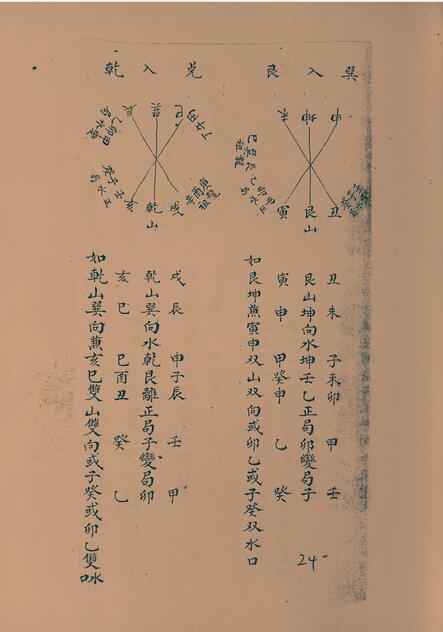 巽入艮
申
坤
未
丑
艮山
寅
丑未 子未卯 甲 壬
艮山坤向水坤壬乙正局卯變局子
寅申 甲癸申 乙 癸
如艮坤兼寅申双山双向或卯乙或子癸双水口
24
兌入乾
巳
巽
辰
戌
乾山
亥
戌辰 申子辰 壬 甲
乾山巽向水乾艮離正局子變局卯
亥巳 巳酉丑 癸 乙
如乾山巽向兼亥巳雙山雙向或子癸或卯乙雙水口